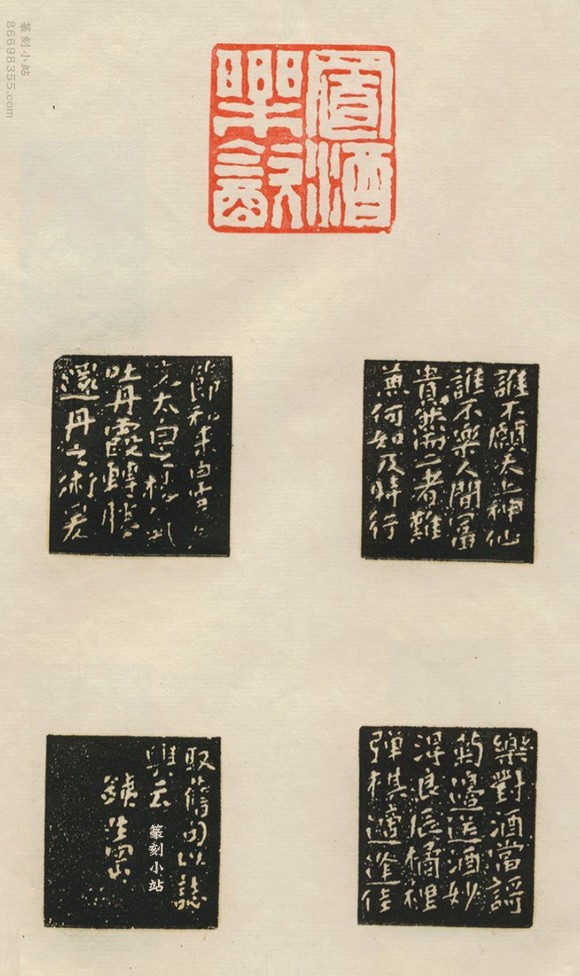 篆刻小站
86698355.com
酒
樂
誰不願天上神仙
誰不樂人間富
貴然而二者難
兼何如及時行
樂對酒當謌
菊邊送酒妙
得良辰橘裡
彈棋適逢佳
節和來白雪
太白之
吐丹霞轉勝
還丹之術爰
取舊句以誌
興云
鐵生
篆刻小站